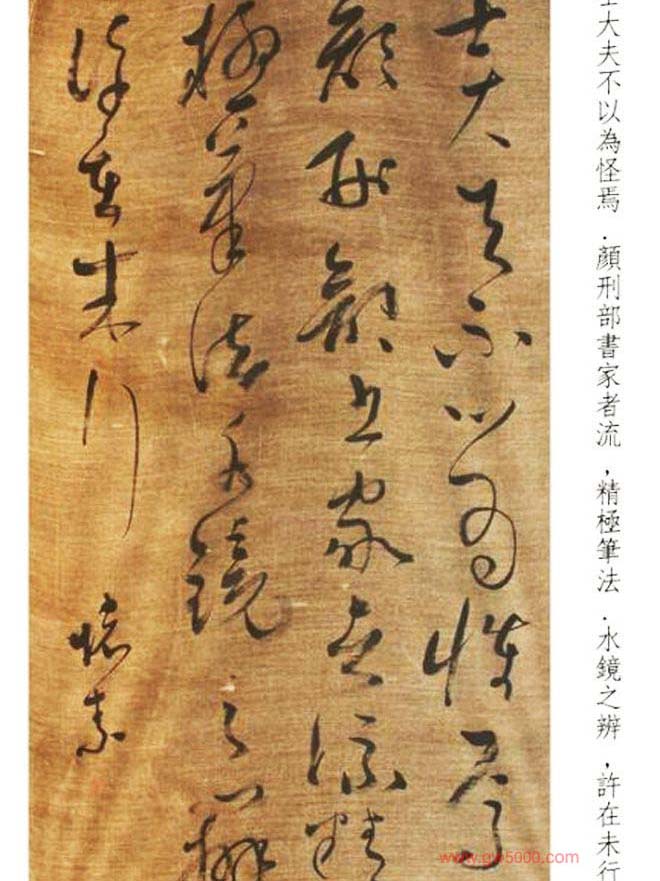 士大夫不以為怪焉．顏刑部書家者流，精極筆法．水鏡之辨，許在未行
士大夫不以為怪焉
顏刑部書家者流精
極筆法水鏡之辨
許在末行 懷素